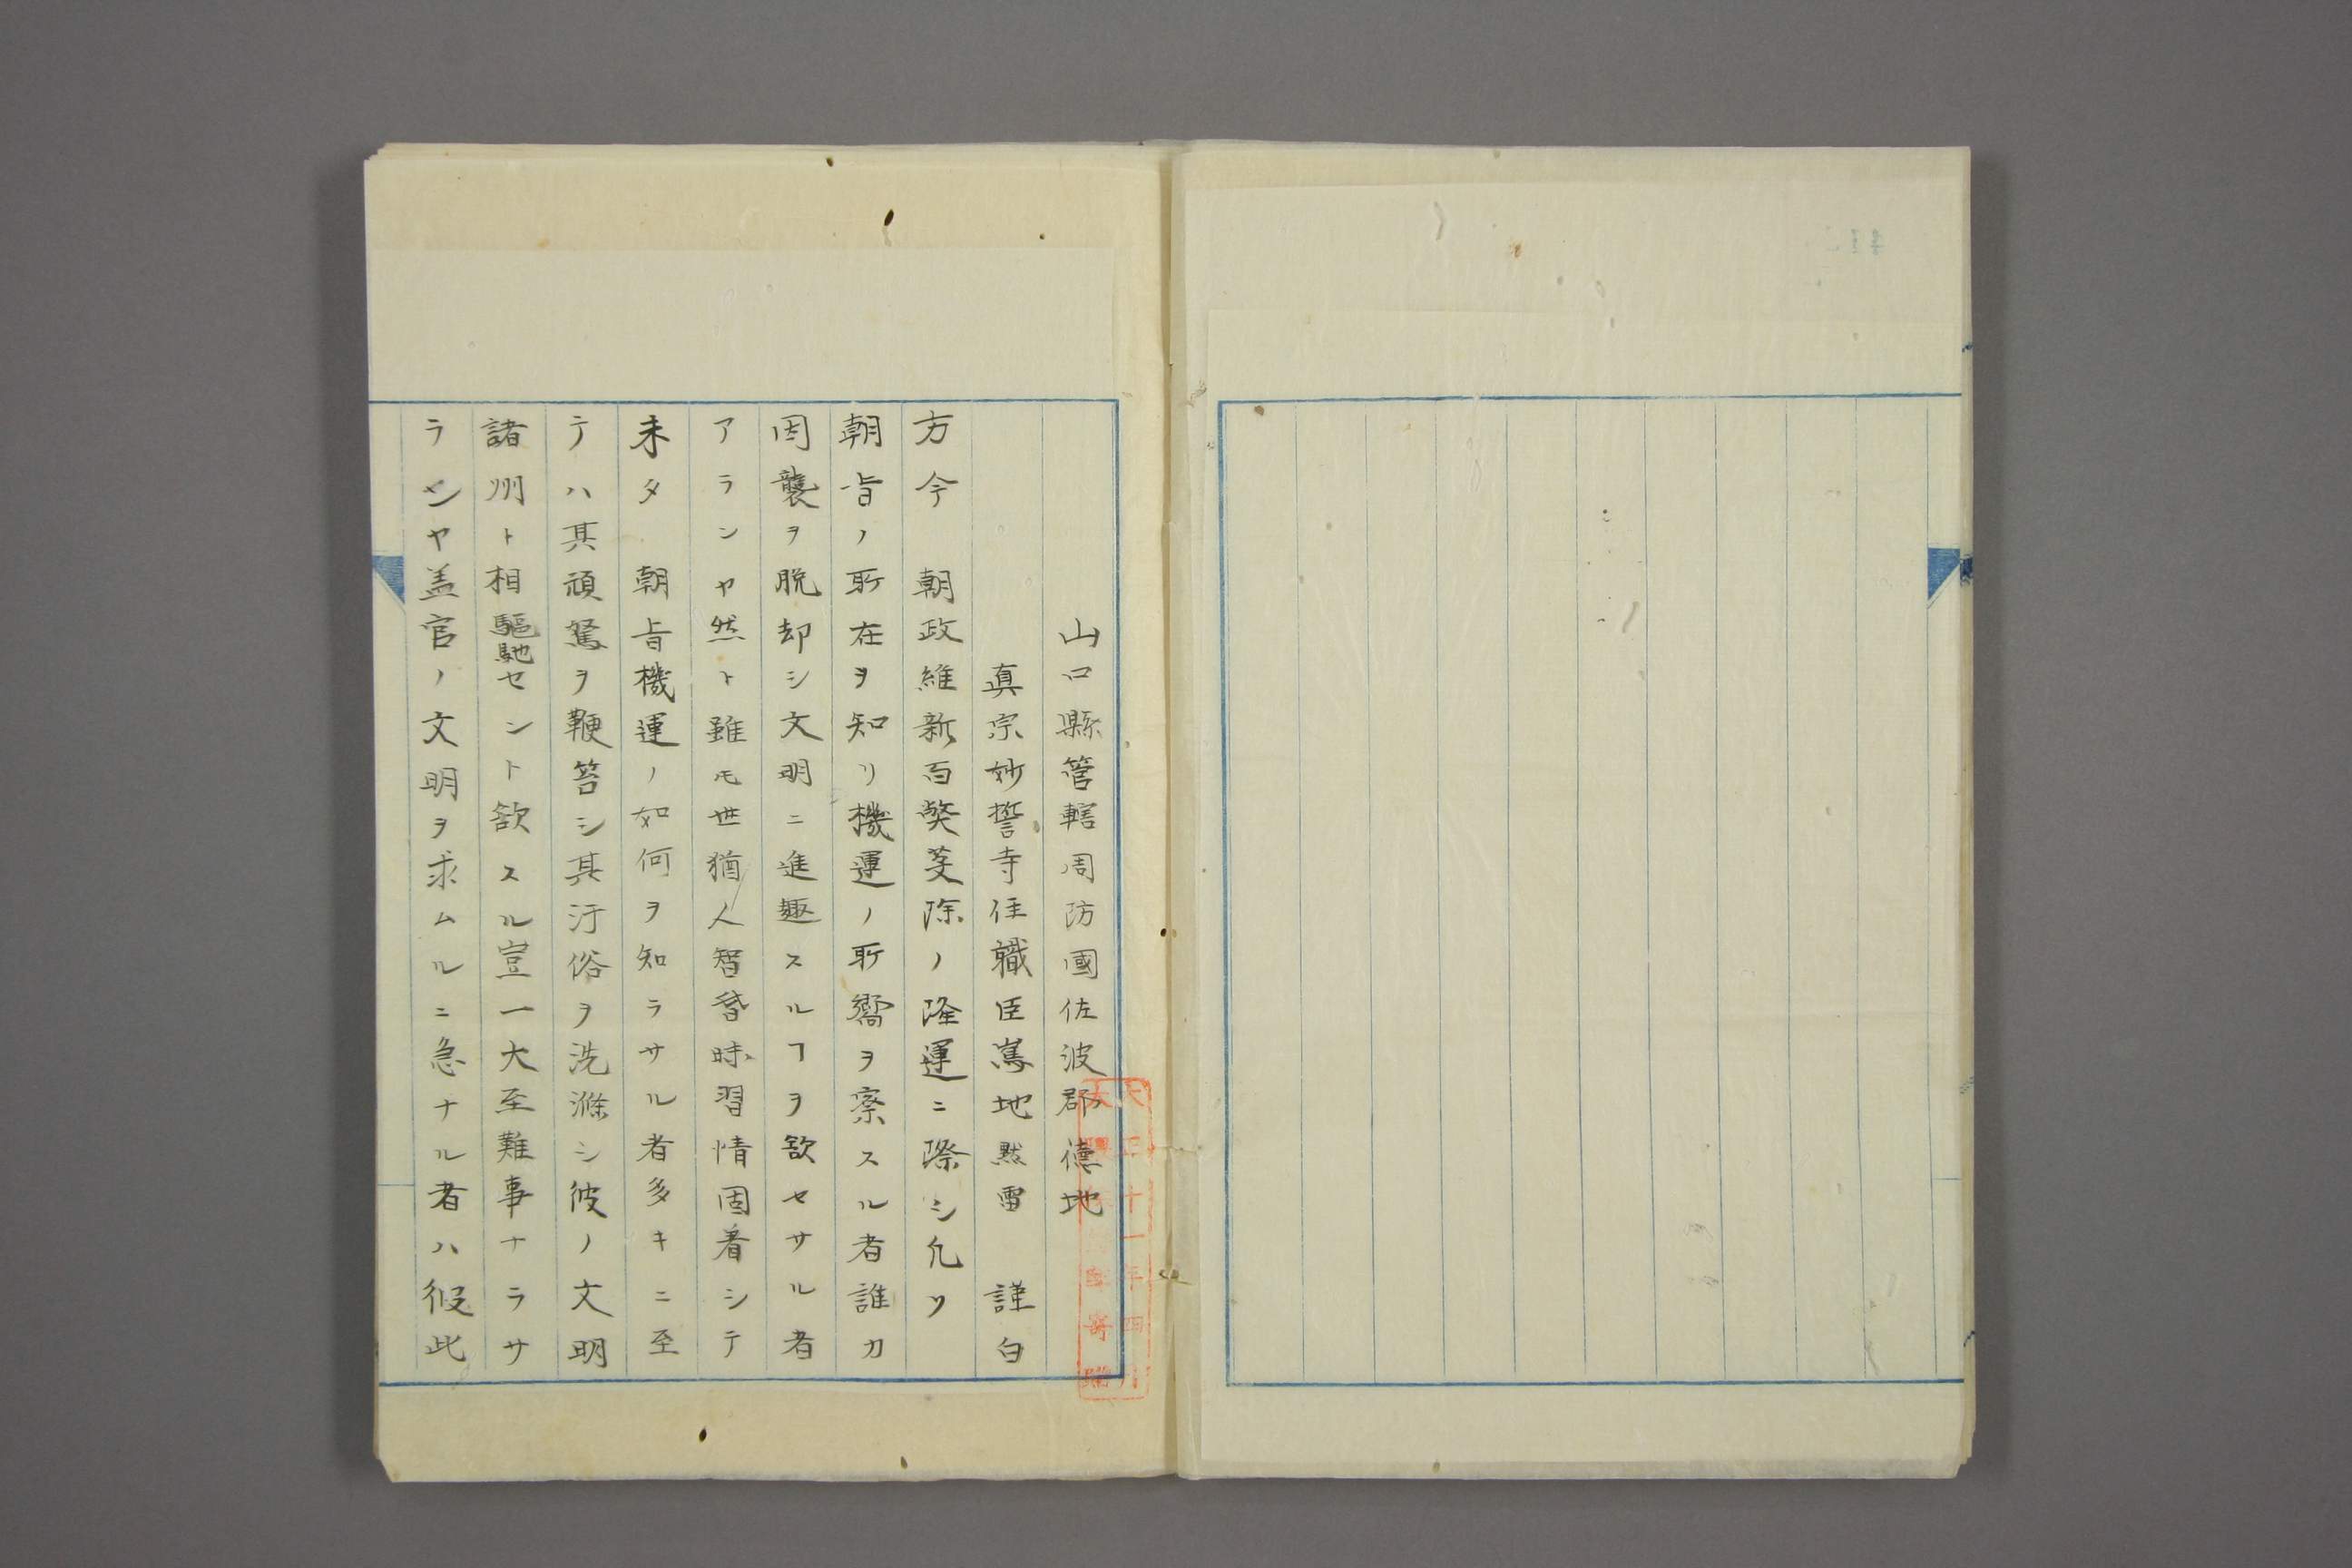 山口縣管轄周防國佐波郡德地
真宗妙誓寺住職臣嶌地黙雷　謹白
方今　朝政維新百獘芟除ノ隆運ニ際シ凢ソ
朝旨ノ所在ヲ知リ機運ノ所嚮ヲ察スル者誰カ
因襲ヲ脱却シ文明ニ進趣スルヿヲ欲セサル者
アランヤ然ト雖モ世猶人智昏時習情固着シテ
未タ　朝旨機運ノ如何ヲ知ラサル者多キニ至
テハ其頑駑ヲ鞭笞シ其汙俗ヲ洗滌シ彼ノ文明
諸州ト相驅馳セント欲スル豈一大至難事ナラサ
ランヤ盖官ノ文明ヲ求ムルニ急ナル者ハ彼此
大正十一年四月
寄贈